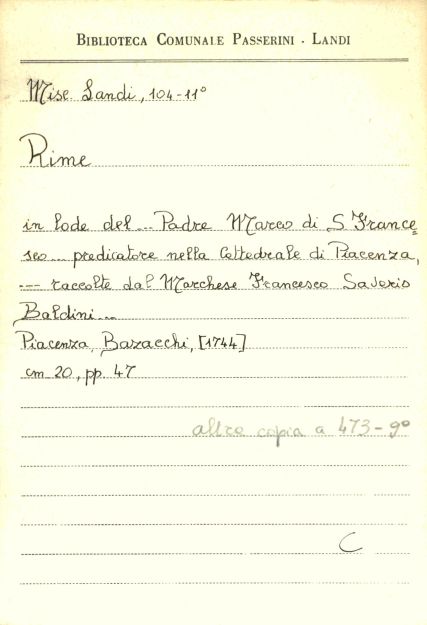 BIBLIOTECA COMUNALE PASSERINI - LANDI
Misc. Landi, 104-11°
Rime
in lode del... Padre Marco di S. France=
sco... predicatore nella Cattedrale di Piacenza,
--- raccolte dal Marchese Francesco Saverio
Baldini...
Piacenza, Bazacchi, [1744]
cm 20, pp. 47
altra copia a 473-9°
C